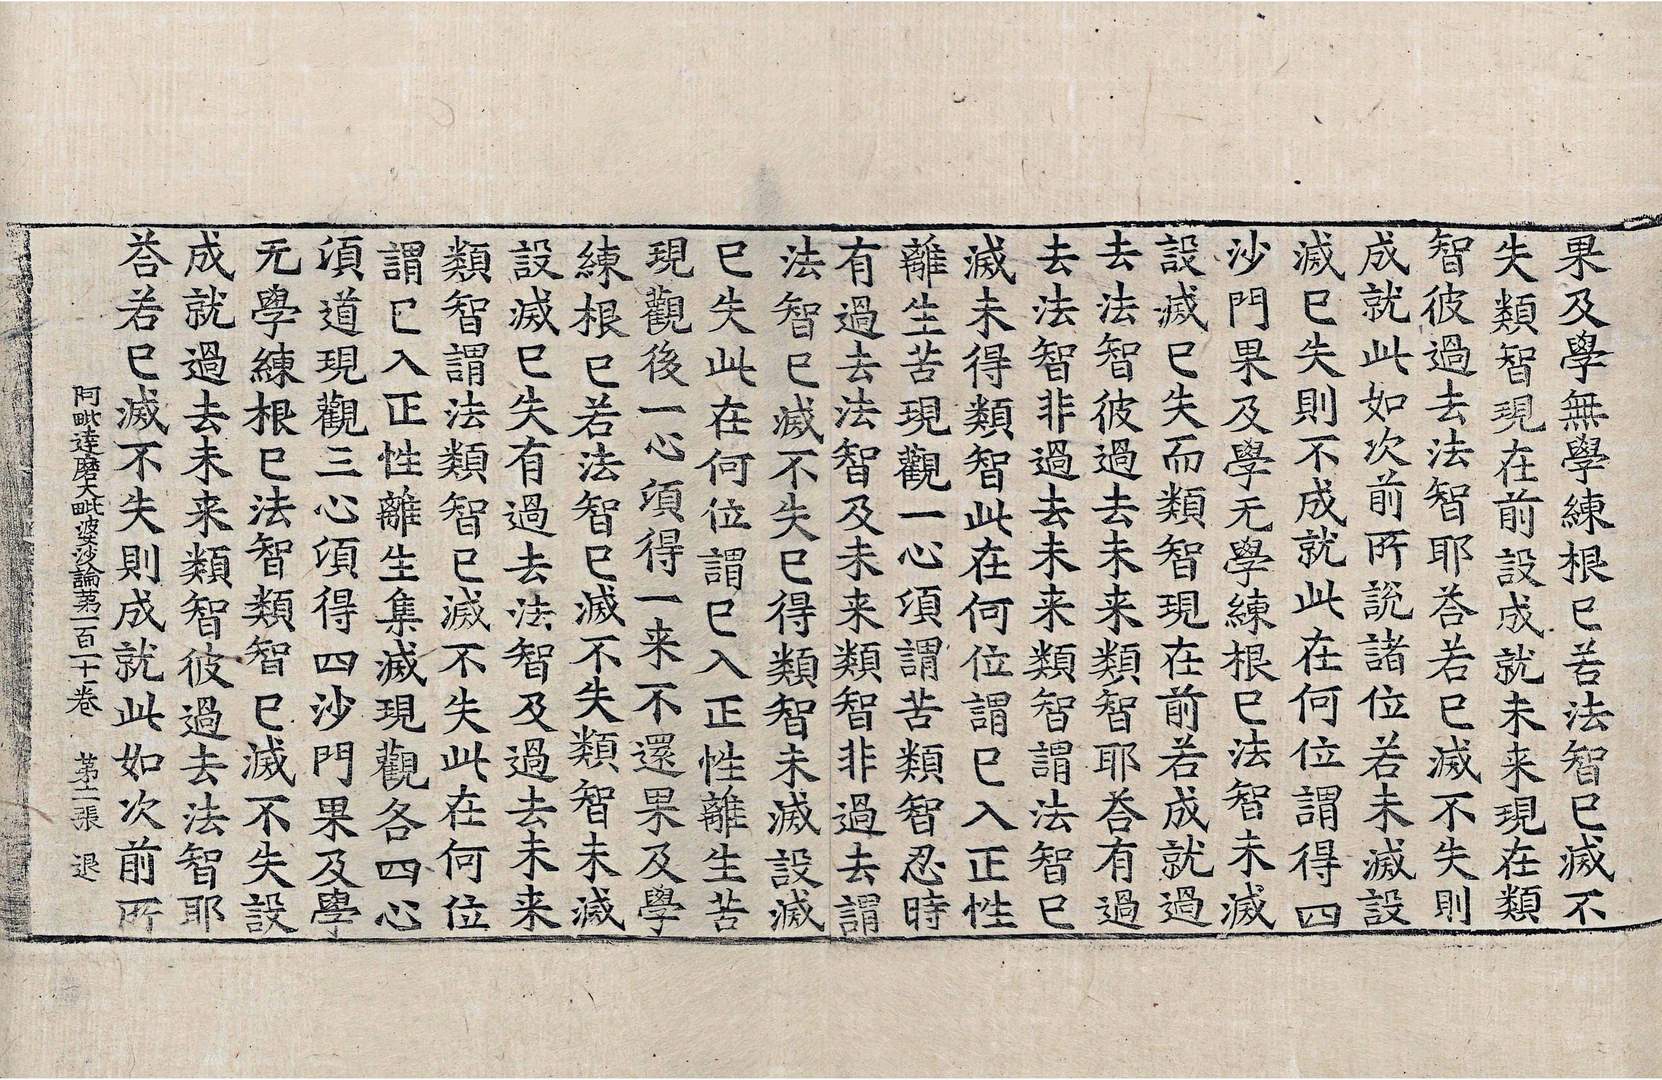 果及學無學練根已若法智已滅不
失類智現在前設成就未来現在類
智彼過去法智耶荅若已滅不失則
成就此如次前所説諸位若未滅設
滅已失則不成就此在何位謂得四
沙門果及學无學練根已法智未滅
設滅已失而類智現在前若成就過
去法智彼過去未来類智耶荅有過
去法智非過去未来類智謂法智已
滅未得類智此在何位謂已入正性
離生苦現觀一心湏謂苦類智忍時
有過去法智及未来類智非過去謂
法智已滅不失已得類智未滅設滅
已失此在何位謂已入正性離生苦
現觀後一心湏得一来不還果及學
練根已若法智已滅不失類智未滅
設滅已失有過去法智及過去未来
類智謂法類智已滅不失此在何位
謂已入正性離生集滅現觀各四心
湏道現觀三心湏得四沙門果及學
无學練根已法智類智已滅不失設
成就過去未来類智彼過去法智耶
荅若已滅不失則成就此如次前所
阿毗達磨大毗婆沙論苐一百一十卷 苐二張 退